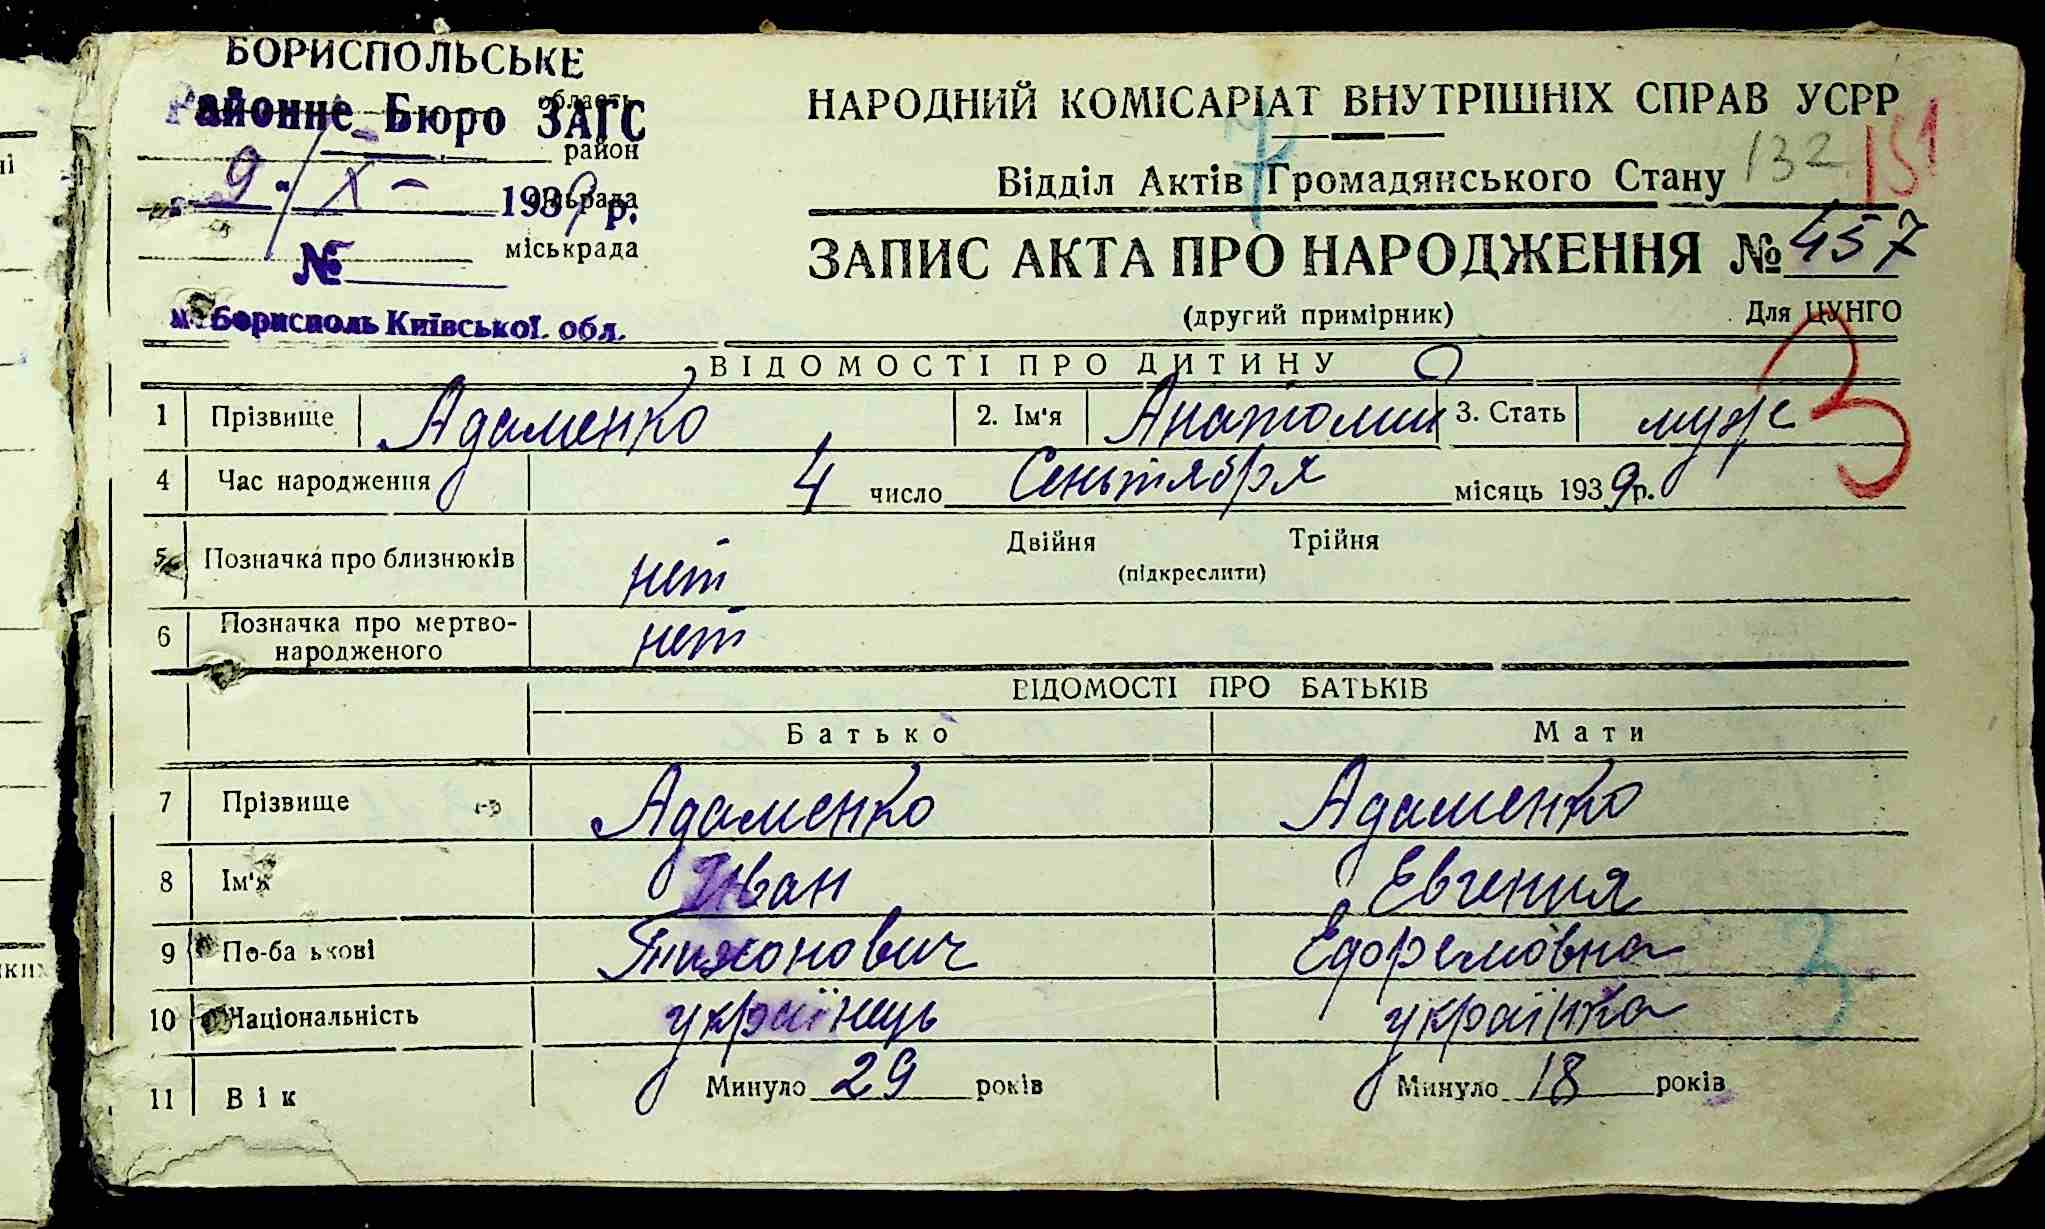 БОРИСПОЛЬСЬКЕ
Районне Бюро ЗАГС
область
район
"9" X - 1939 р.
міськрада
№
м. Бориспіль Київської обл.
НАРОДНИЙ КОМІСАРІАТ ВНУТРІШНІХ СПРАВ УСРР
132 151
Відділ Актів Громадянського Стану
ЗАПИС АКТА ПРО НАРОДЖЕННЯ № 457
(другий примірник) Для ЦУНГО
ВІДОМОСТІ ПРО ДИТИНУ
1 Прізвище Адаменко 2. Ім'я Анатолий 3. Стать муж
4 Час народження 4 число Сеньтября місяць 1939 р.
5 Позначка про близнюків нет Двійня Трійня
(підкреслити)
6 Позначка про мертво-
народженого нет
ВІДОМОСТІ ПРО БАТЬКІВ
Батько Мати
7 Прізвище Адаменко Адаменко
8 Ім'я Иван Евгения
9 По-ба ькові Тихонович Ефремовна
10 Національність українець українка
11 Вік Минуло 29 років Минуло 18 років
3